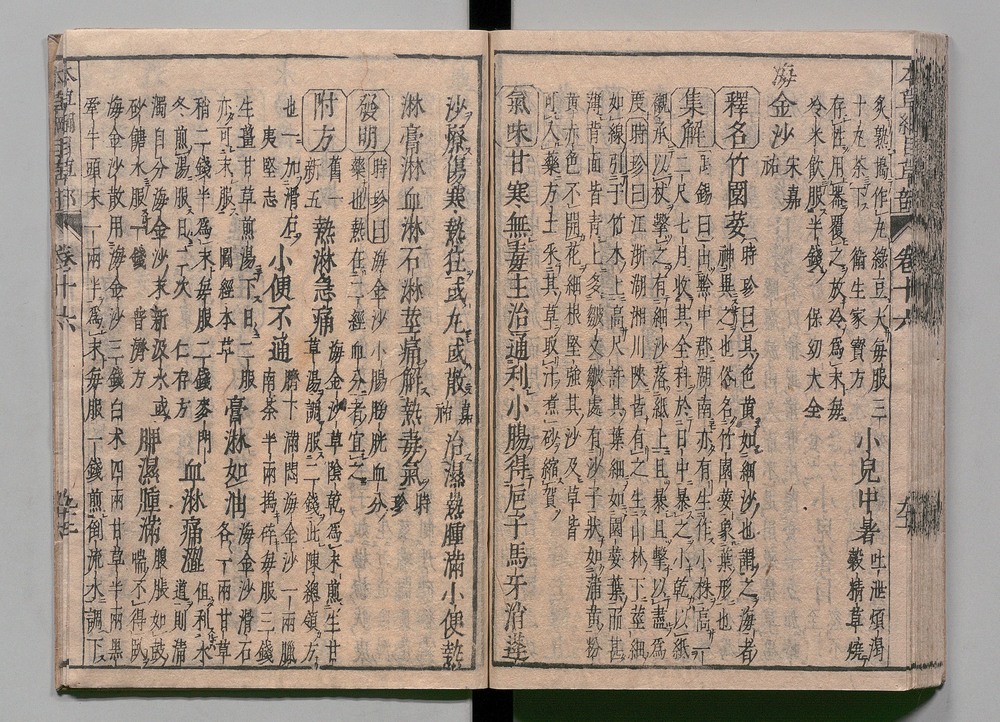 炙熟搗作丸綠豆大每服三
十丸茶下 衞生家寶方 小兒中暑 吐泄煩渴穀精草燒
存性用器覆之放冷爲末每
冷米飲服半錢 保幼大全
海金沙 宋嘉祐
釋名 竹園荽 時珍曰其色黃如細沙也謂之海者
神異之也俗名竹園荽象葉形也
集解 禹錫曰出黔中郡湖南亦有生作小株高一
二尺七月收其全科於日中暴之小乾以紙
襯承以杖擊之有細沙落紙上且暴且擊以盡爲
度時珍曰江浙湖湘川陝皆有之生山林下莖細
如線引于竹木上高尺許其葉細如園荽葉而甚
薄背面皆青上多皺文皺處有沙子狀如蒲黃粉
黃赤色不開花細根堅強其沙及草皆
可入藥方士采其草取汁煮砂縮賀
氣味甘寒無毒主治通利小腸得巵子馬牙消蓬
沙療傷寒熱狂或丸或散 嘉祐 治濕熱腫滿小便熱
淋膏淋血淋石淋莖痛解熱毒氣 時珍
發明 時珍曰海金沙小腸膀胱血分
藥也熱在二經血分者宜之
附方 舊一新五 熱淋急痛 海金沙草陰乾爲末煎生甘
草湯調服二錢此陳總領方
也一加滑石 小便不通 臍下滿悶海金沙一兩臘
南茶半兩搗碎每服三錢
生薑甘草煎湯下日二服
亦可末服 圖經本草 膏淋如油 海金沙滑石
各一兩甘草
稍二錢半爲末每服二錢麥門
冬煎湯服日二次 仁存方 血淋痛澀 但利水
道則清
濁自分海金沙末新汲水或
砂糖水服一錢 普濟方 脾濕腫滿 腹脹如鼓
喘不得臥
海金沙散用海金沙三錢白术四兩甘草半兩黑
牽牛頭末一兩半爲末每服一錢煎倒流水調下
卷十六